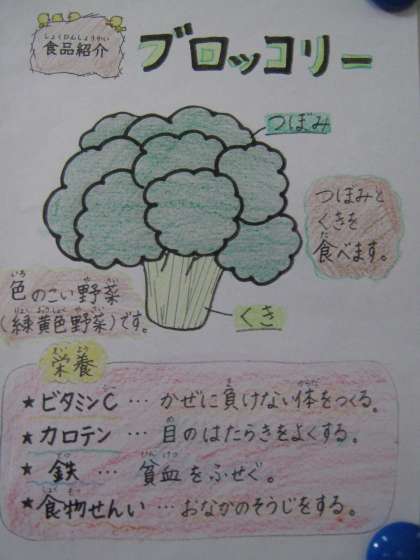 しょくひんしょうかい
食品紹介
ブロッコリー
つぼみ
つぼみと
くきを
食べます。
色のこい野菜
(緑黄色野菜)です。
くき
栄養
★ビタミンC…かぜに負けない体をつくる。
★カロテン…目のはたらきをよくする。
★鉄…貧血をふせぐ。
★食物せんい…おなかのそうじをする。